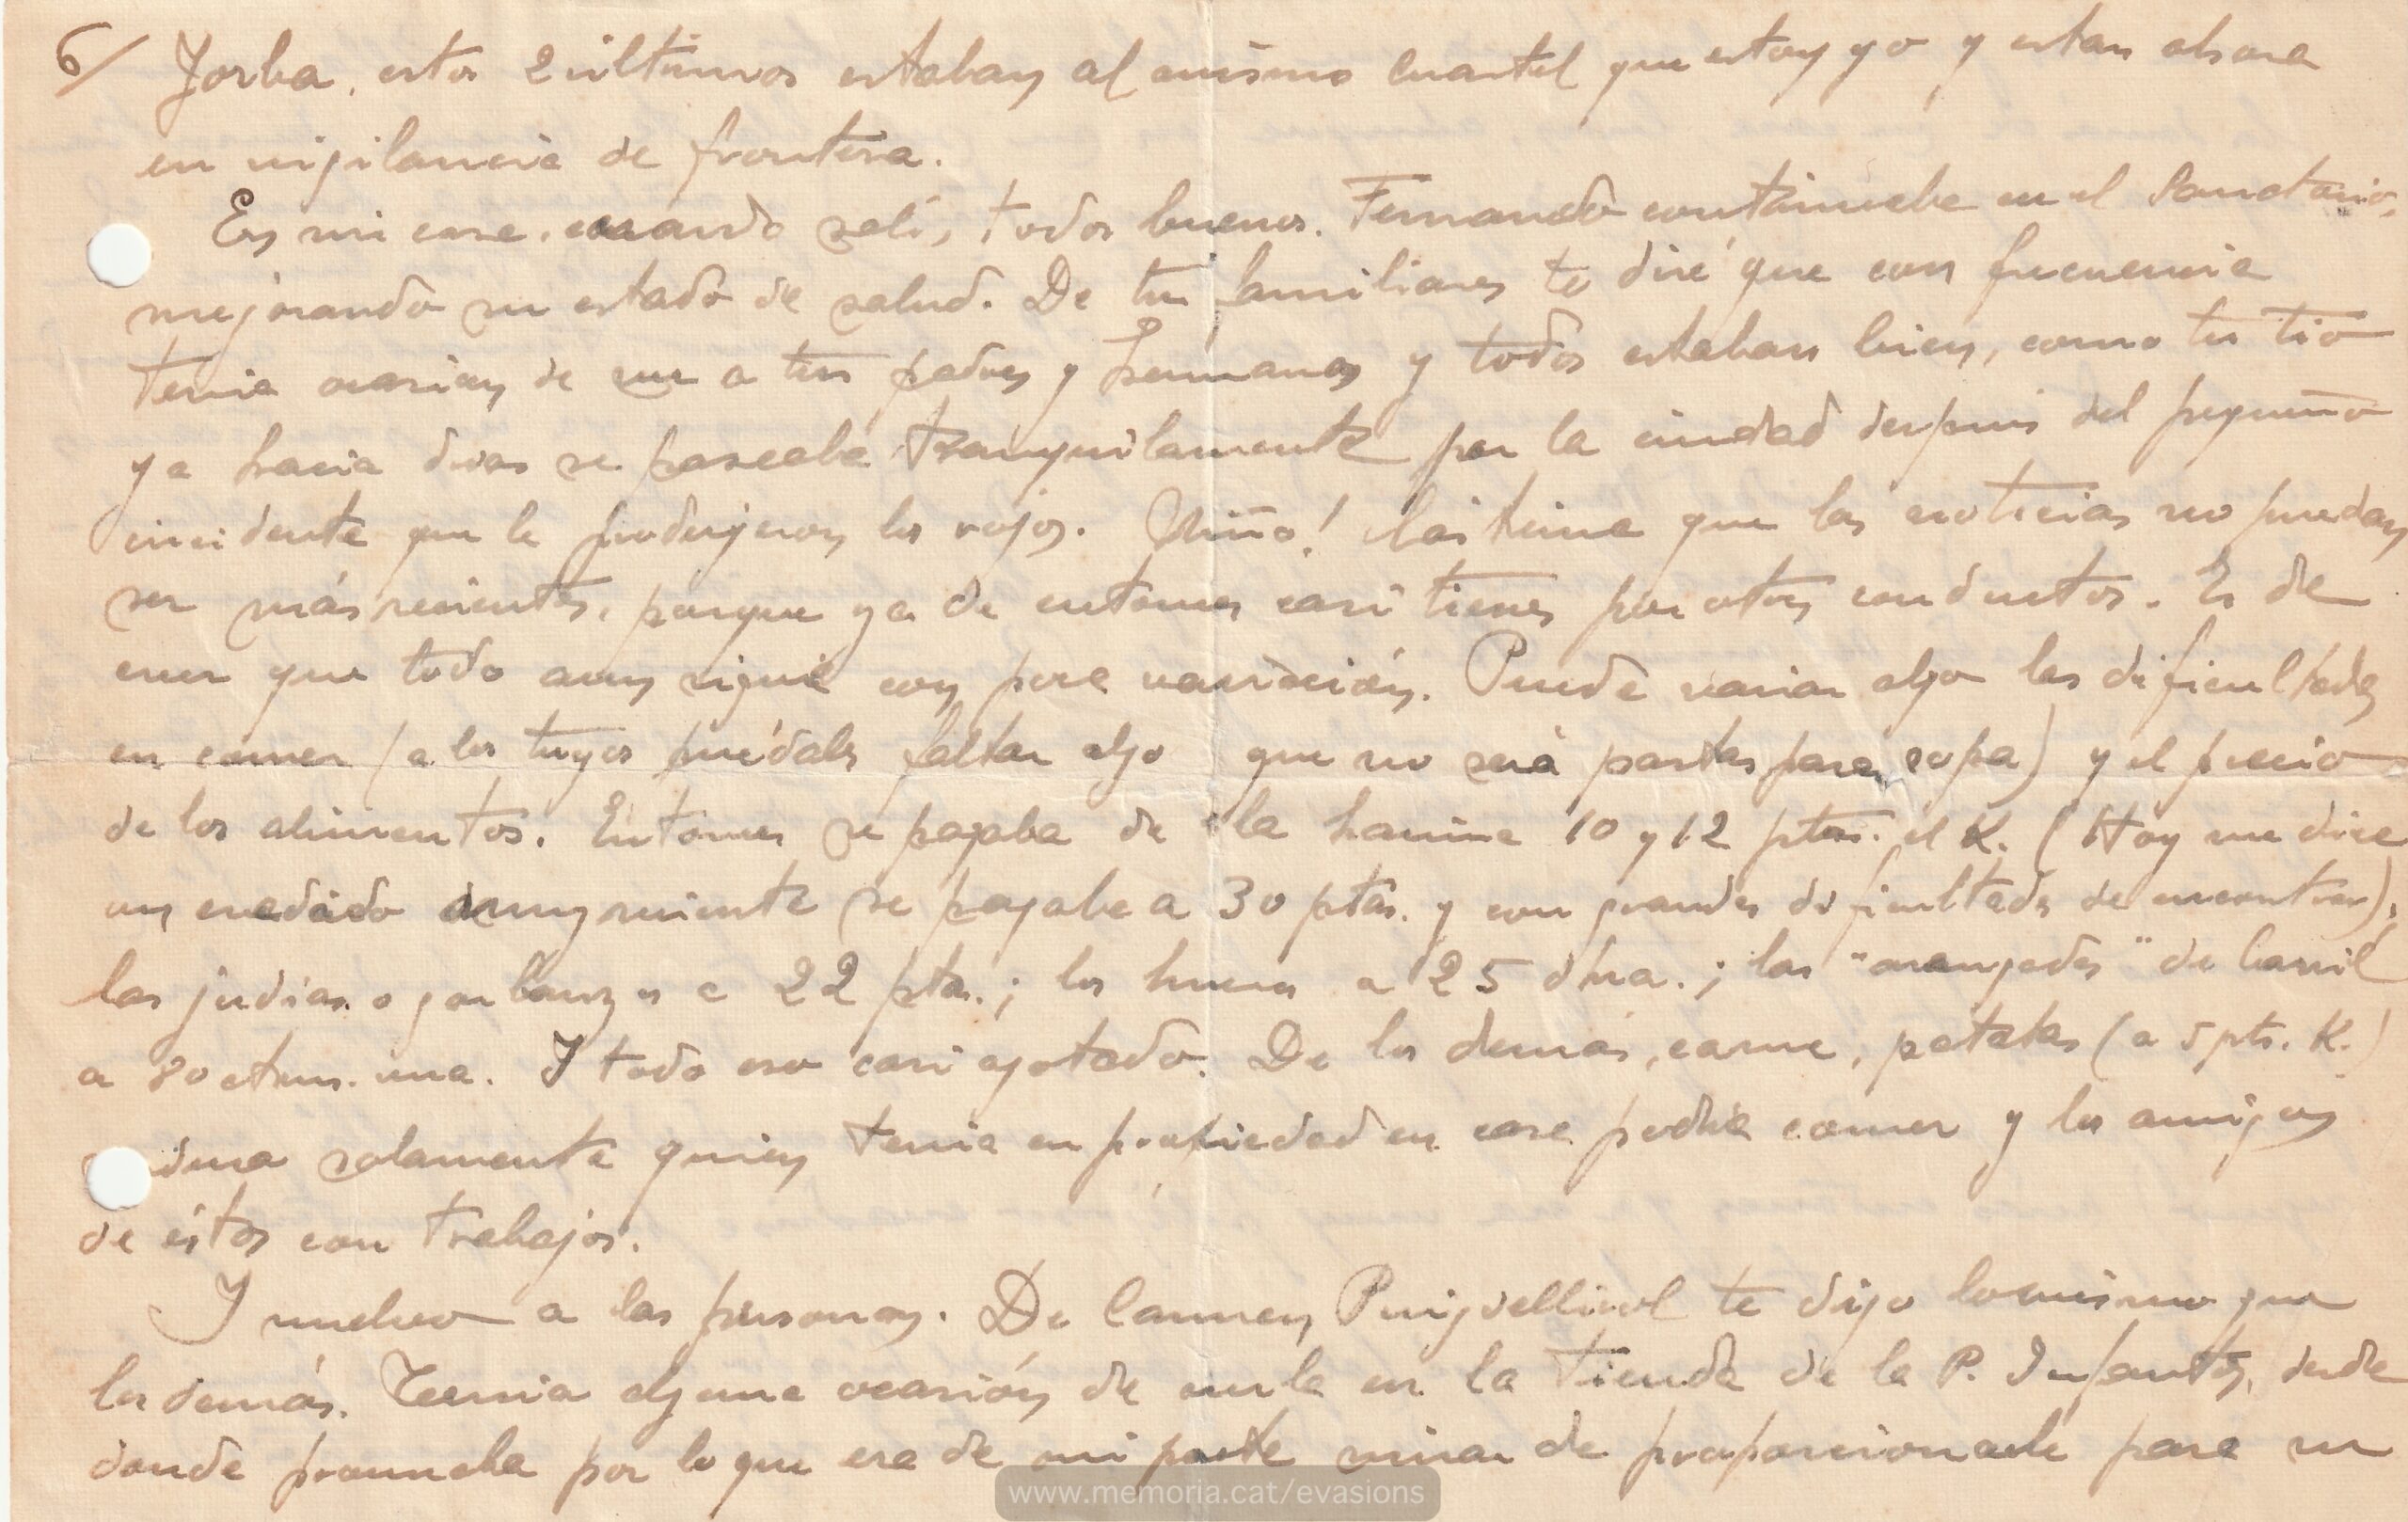 6/ Jorba, estos 2 últimos estaban al mismo cuartel que estoy yo y estan ahora
en vigilancia de frontera.
En mi casa, cuando salí, todos buenos. Fernando continuaba en el Sanatorio,
mejorando su estado de salud. De tus familiares te diré que con frecuencia
tenia ocasion de ver a tus padres y hermanas y todos estaban bien, como tu tio
ya hacia dias se paseaba tranquilamente por la ciudad despues del pequeño
incidente que le produjeron los rojos. Niño! lástima que las noticias no puedan
ser más recientes, porque ya de entonces casi tienes por otros conductos. Es de
creer que todo aun sigue con poca variación. Puede variar algo las dificultades
en comer (a los tuyos puédales faltar algo que no será pastas para sopa) y el precio
de los alimentos. Entonces se pagaba de la harina 10 y 12 ptas. el K. (Hoy me dice
un evadido muy reciente se pagaba a 30 ptas. y con grandes dificultades de encontrar),
las judias o garbanzos a 22 ptas.; los huevos a 25 dna.; las "arengades" de barril
a 80 ctms. una. Y todo eso casi agotado. De los demás, carne, patatas (a 5 pts. K.)
solamente quien tenia en propiedad en casa podia comer y los amigos
de éstos con trabajos.
Y vuelvo a las personas. De Carmen Puigdellivol te digo lo mismo que
los demás. Tenia alguna ocasión de verla en la tienda de la P. Infantes, desde
donde procuraba por lo que era de mi parte mirar de proporcionarle para su
www.memoria.cat/evasions